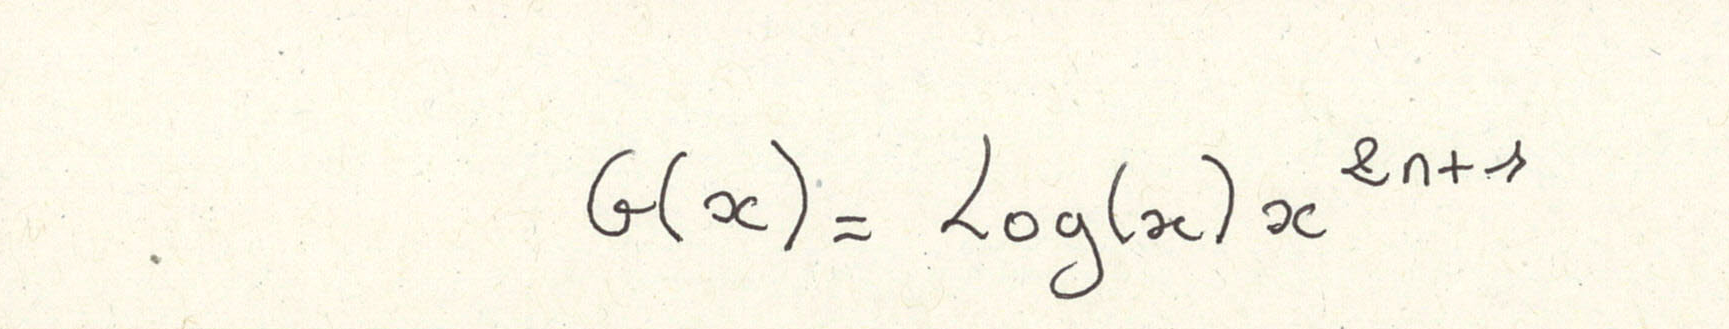 G(x) = Log(x) x^{2n+1}